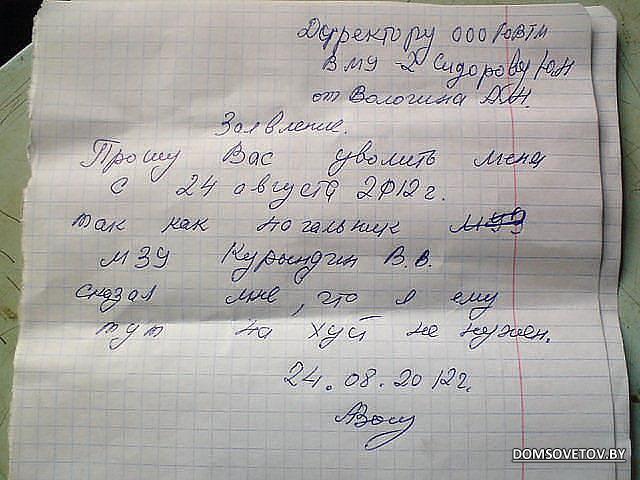 Директору ООО ЮВТМ
ВМУ-2 Сидорову Ю.Н
от Вологина А.Н.
Заявление.
Прошу Вас уволить меня
с 24 августа 2012 г.
так как начальник
МЗУ Курындин В.В.
сказал мне, что я ему
тут на хуй не нужен.
24.08.2012г.
DOMSOVETOV.BY